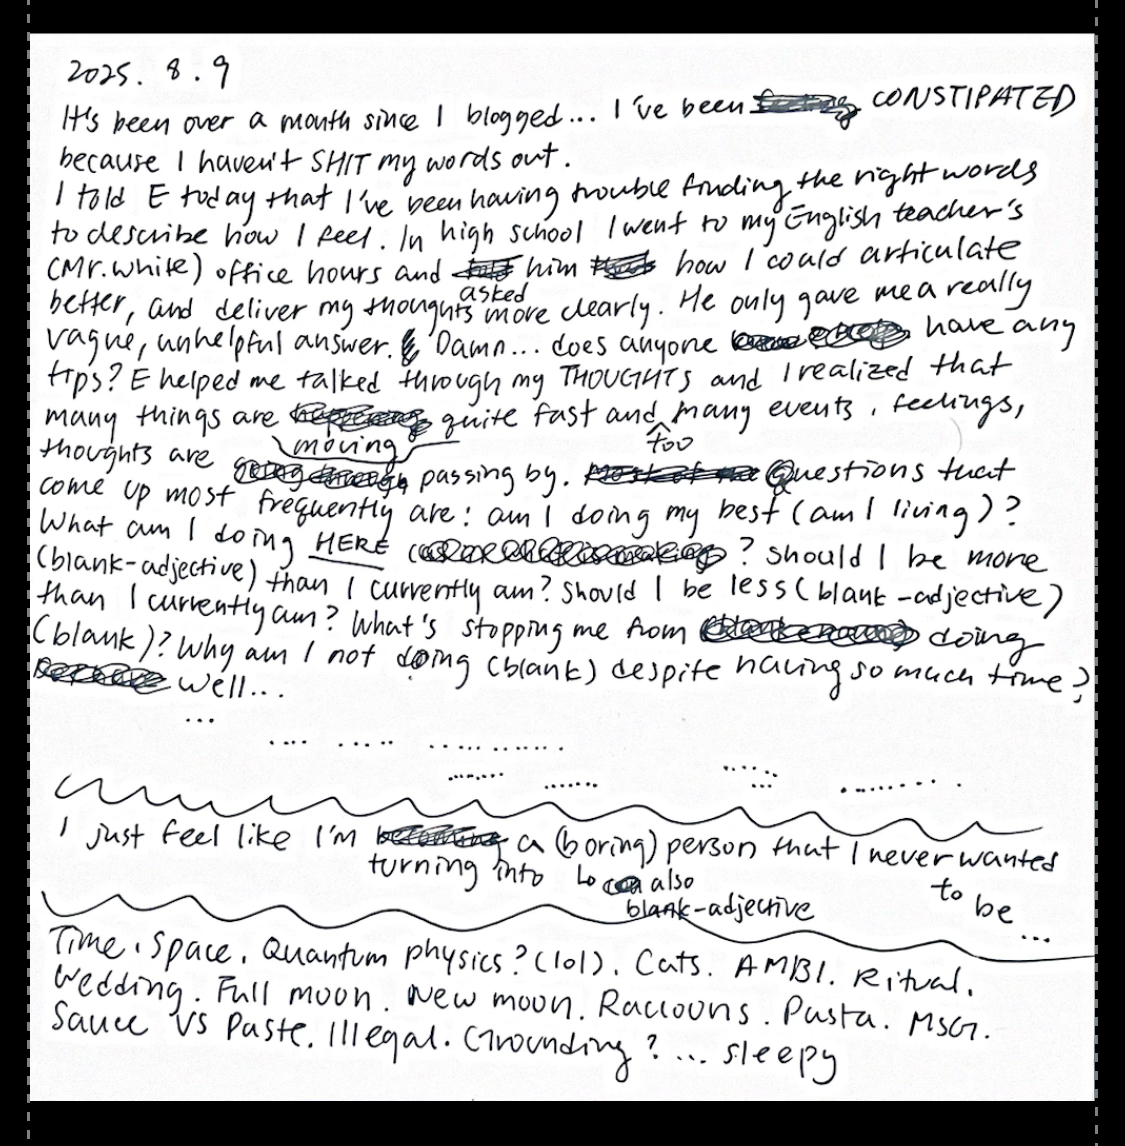 2025. 8. 9
It's been over a month since I blogged... I've been CONSTIPATED
because I haven't SHIT my words out.
I told E today that I've been having trouble finding the right words
to describe how I feel. In high school I went to my English teacher's
(Mr. White) office hours and asked him how I could articulate
better, and deliver my thoughts more clearly. He only gave me a really
vague, unhelpful answer. Damn... does anyone have any
tips? E helped me talked through my THOUGHTS and I realized that
many things are moving quite fast and too many events, feelings,
thoughts are passing by. Questions that
come up most frequently are: am I doing my best (am I living)?
What am I doing HERE ? Should I be more
(blank-adjective) than I currently am? Should I be less (blank-adjective)
than I currently am? What's stopping me from doing
(blank)? Why am I not doing (blank) despite having so much time?
Well...
...
.... ..... ....... .......
....... ...... ...... ........
I just feel like I'm turning into a (boring) person that I never wanted
to be ...
also
blank-adjective
Time. Space. Quantum physics? (lol). Cats. AMBI. Ritual.
Wedding. Full moon. New moon. Raccoons. Pasta. MSG.
Sauce VS Paste. Illegal. Grounding? ... sleepy